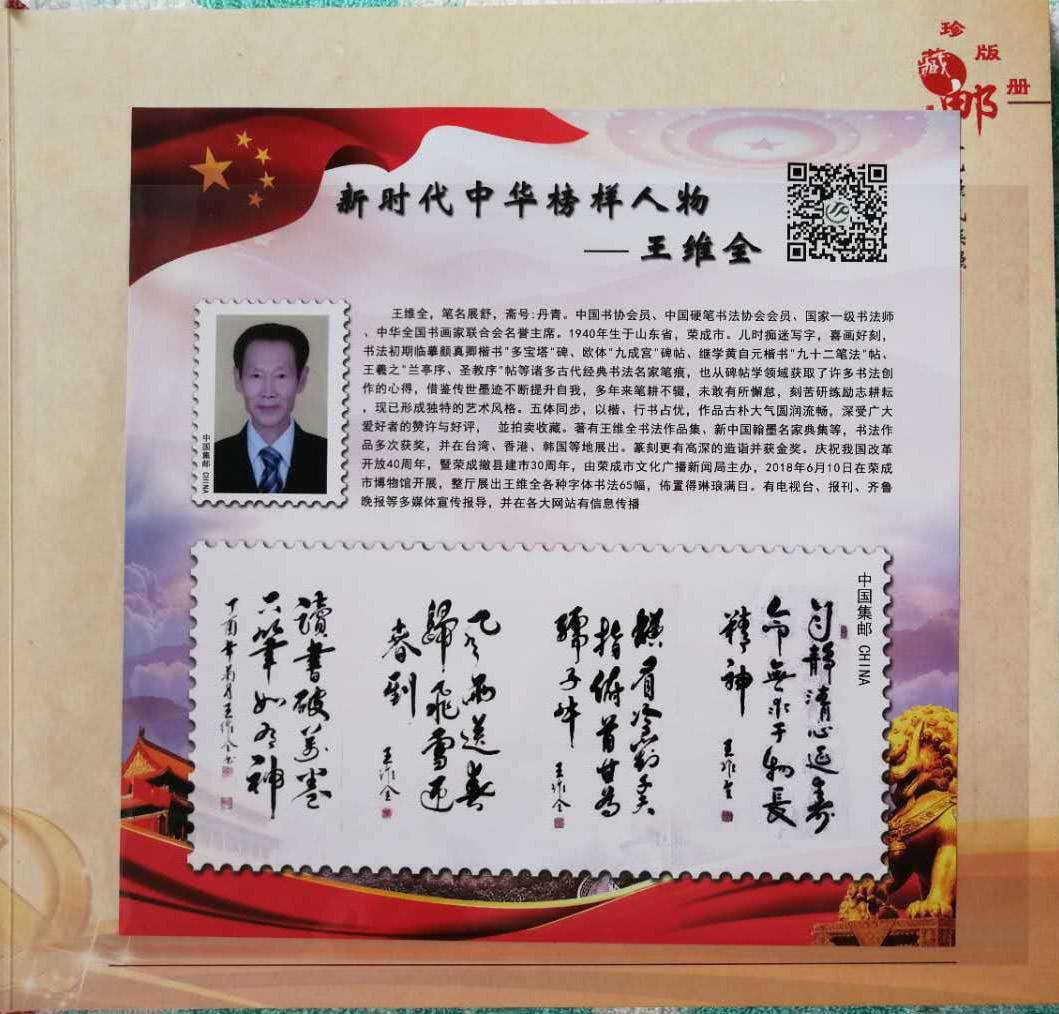 珍
藏
版
邮
册
新时代中华榜样人物
——王维全
王维全，笔名展舒，斋号:丹青。中国书协会员、中国硬笔书法协会会员、国家一级书法师
、中华全国书画家联合会名誉主席。1940年生于山东省，荣成市。儿时痴迷写字，喜画好刻，
书法初期临摹颜真卿楷书"多宝塔"碑、欧体"九成宫"碑帖、继学黄自元楷书"九十二笔法"帖、
王羲之"兰亭序、圣教序"帖等诸多古代经典书法名家笔痕，也从碑帖学领域获取了许多书法创
作的心得，借鉴传世墨迹不断提升自我，多年来笔耕不辍，未敢有所懈怠，刻苦研练励志耕耘
，现已形成独特的艺术风格。五体同步，以楷、行书占优，作品古朴大气圆润流畅，深受广大
爱好者的赞许与好评， 並拍卖收藏。著有王维全书法作品集、新中国翰墨名家典集等，书法作
品多次获奖，并在台湾、香港、韩国等地展出。篆刻更有高深的造诣并获金奖。庆祝我国改革
开放40周年，暨荣成撤县建市30周年，由荣成市文化广播新闻局主办，2018年6月10日在荣成
市博物馆开展，整厅展出王维全各种字体书法65幅，佈置得琳琅满目。有电视台、报刊、齐鲁
晚报等多媒体宣传报导，并在各大网站有信息传播
中国集邮 CHINA
中国集邮 CHINA
身静清心延年寿
命無求于物長
精神
王维全
橫眉冷對千夫
指俯首甘為
孺子牛
王维全
風雨送春
歸飛雪迎
春到
王维全
讀書破萬卷
下筆如有神
丁酉年菊月王维全书